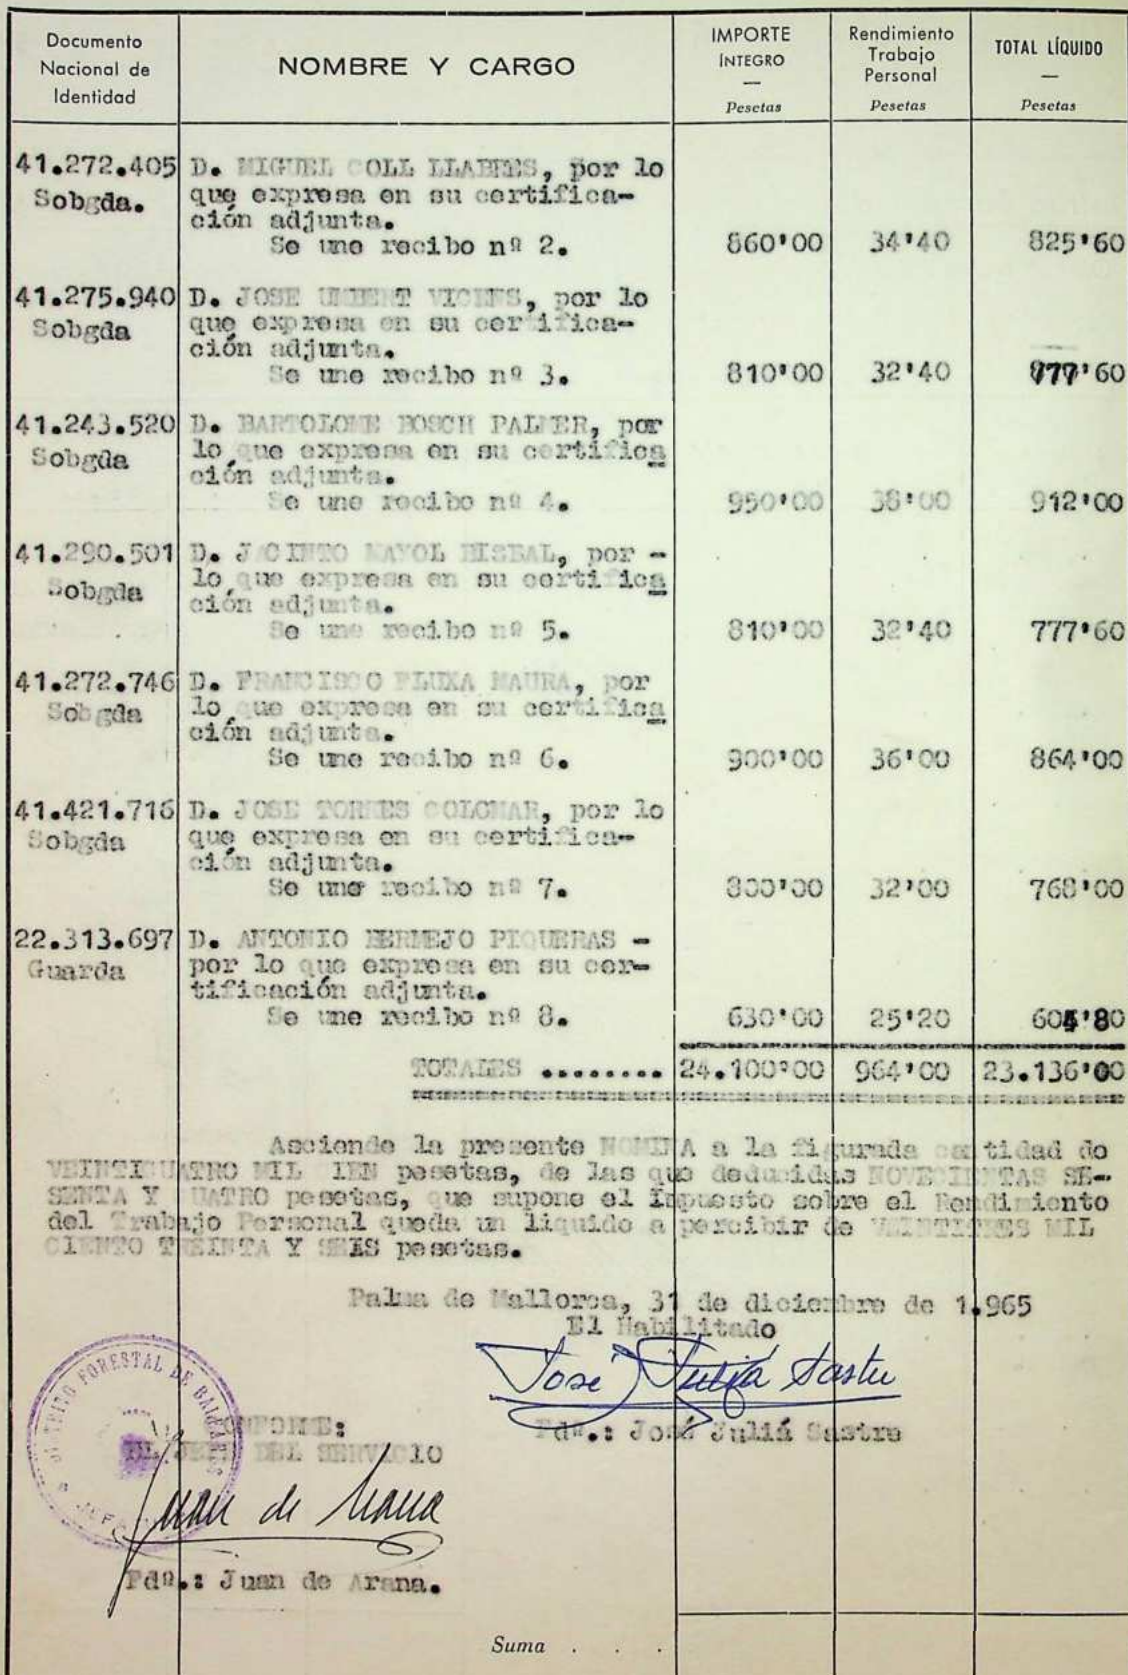 Documento
Nacional de
Identidad
NOMBRE Y CARGO
IMPORTE
ÍNTEGRO
—
Pesetas
Rendimiento
Trabajo
Personal
Pesetas
TOTAL LÍQUIDO
—
Pesetas
41.272.405 D. MIGUEL COLL LLABRES, por lo
Sobgda. que expresa en su certifica-
ción adjunta.
Se une recibo nº 2. 860'00 34'40 825'60
41.275.940 D. JOSE VICENS, por lo
Sobgda que expresa en su certifica-
ción adjunta.
Se une recibo nº 3. 810'00 32'40 777'60
41.243.520 D. BARTOLOME BOSCH PALMER, por
Sobgda lo que expresa en su certifica
ción adjunta.
Se une recibo nº 4. 950'00 38'00 912'00
41.290.501 D. JACINTO MAYOL BISBAL, por -
Sobgda lo que expresa en su certifica
ción adjunta.
Se une recibo nº 5. 810'00 32'40 777'60
41.272.746 D. FRANCISCO PLUXA MAURA, por
Sobgda lo que expresa en su certifica
ción adjunta.
Se une recibo nº 6. 900'00 36'00 864'00
41.421.716 D. JOSE TORRES COLOMAR, por lo
Sobgda que expresa en su certifica-
ción adjunta.
Se une recibo nº 7. 800'00 32'00 768'00
22.313.697 D. ANTONIO BERMEJO PIQUERAS -
Guarda por lo que expresa en su cer-
tificación adjunta.
Se une recibo nº 8. 630'00 25'20 604'80
TOTALES ........ 24.100'00 964'00 23.136'00
Asciende la presente NOMINA a la figurada cantidad de
VEINTICUATRO MIL CIEN pesetas, de las que deducidas NOVECIENTAS SE-
SENTA Y CUATRO pesetas, que supone el Impuesto sobre el Rendimiento
del Trabajo Personal queda un líquido a percibir de VEINTITRES MIL
CIENTO TREINTA Y SEIS pesetas.
Palma de Mallorca, 31 de diciembre de 1.965
El Habilitado
José Juliá Sastre
Fdº.: José Juliá Sastre
DISTRITO FORESTAL DE BALEARES
CONFORME:
EL JEFE DEL SERVICIO
Juan de Arana
Fdº.: Juan de Arana.
Suma . . .